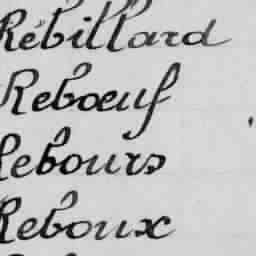 Rébillard
Rebœuf
Rebours
Reboux